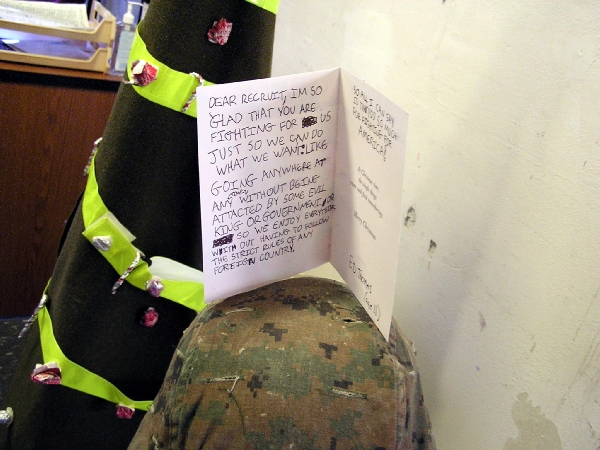 DEAR RECRUIT, I'M SO
GLAD THAT YOU ARE
FIGHTING FOR US
JUST SO WE CAN DO
WHAT WE WANT: LIKE
GOING ANYWHERE AT
ANY TIME WITHOUT BEING
ATTACTED BY SOME EVIL
KING OR GOVERNMENT OR
SO WE ENJOY EVERYTHING
WITH OUT HAVING TO FOLLOW
THE STRICT RULES OF ANY
FOREIGN COUNTRY.
SO ALL I CAN SAY
IS THANK YOU SO MUCH
FOR FIGHTING FOR
AMERICA!
Merry Christmas